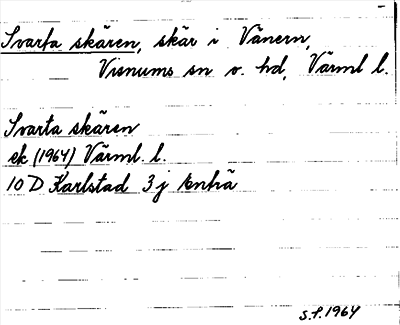 Svarta skären, skär i Vänern,
Visnums sn o. hd, Värml l.
Svarta skären
ek (1964) Värml. l.
10 D Karlstad 3 j
S.f. 1964